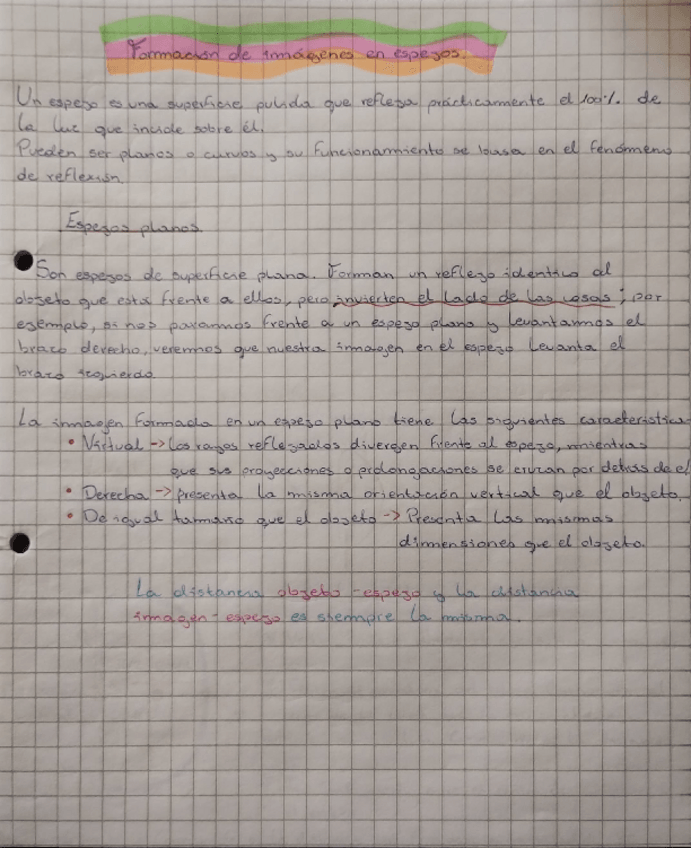 Formación de imágenes en espejos.
Un espejo es una superficie pulida que refleja prácticamente el 100% de
la luz que incide sobre él.
Pueden ser planos o curvos y su funcionamiento se basa en el fenómeno
de reflexión.
Espejos planos.
Son espejos de superficie plana. Forman un reflejo identico al
objeto que está frente a ellos, pero invierten el lado de las cosas; por
ejemplo, si nos paramos frente a un espejo plano y levantamos el
brazo derecho, veremos que nuestra imagen en el espejo levanta el
brazo izquierdo
La imagen formada en un espejo plano tiene las siguientes característica
• Virtual -> Los rayos reflejados divergen frente al espejo, mientras
que sus proyecciones o prolongaciones se cruzan por detrás de el
• Derecha -> presenta la misma orientación vertical que el objeto.
• De igual tamaño que el objeto -> Presenta las mismas
dimensiones que el objeto.
La distancia objeto-espejo y la distancia
imagen-espejo es siempre la misma.